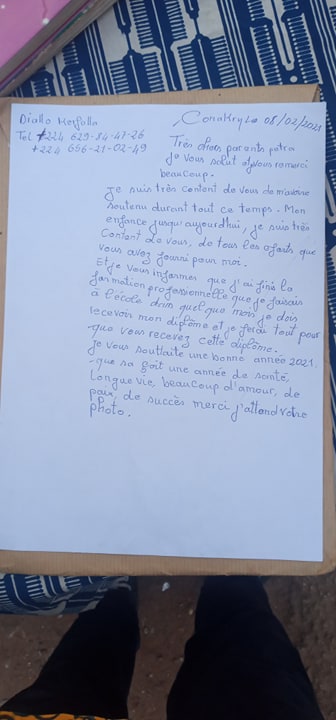 Diallo Kerfalla
Conakry Le 08/02/2021
Tel +224 629-84-47-26
+224 656-21-02-49
Très chers parents petra
je vous salut et vous remerci
beaucoup.
je suis très content de vous de m'avoire
soutenu durant tout ce temps. Mon
enfance jusqu'aujourd'hui, je suis très
Content de vous, de tous les eforts que
vous avez fourni pour moi.
Et je vous informes que j'ai fini la
formation professionnelle que je faisais
à l'école dans quelque mois je dois
recevoir mon diplôme et je ferai tout pour
que vous recevez cette diplôme.
je vous souhaite une bonne année 2021,
que sa soit une année de santé,
Longue vie, beaucoup d'amour, de
paix, de succès merci j'attend votre
photo.